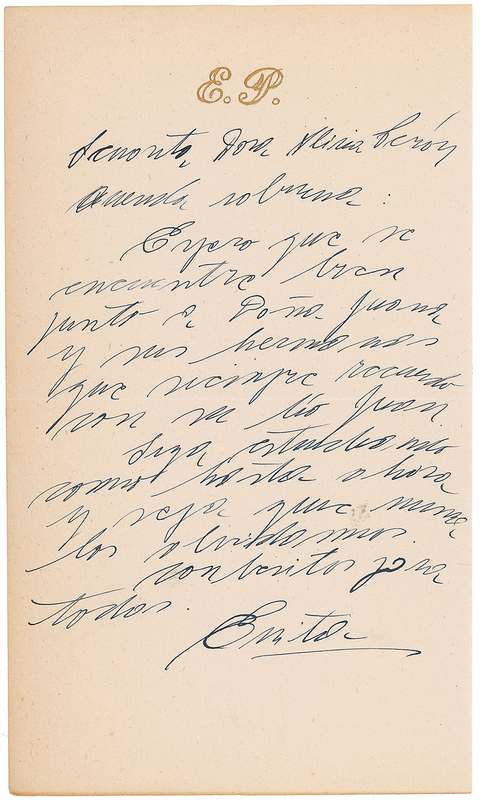 E. P.
Señorita Dora Alicia Perón
Querida sobrina:
Espero que se
encuentre bien
junto a Doña Juana
y sus hermanas
que siempre recuerdo
con su tío Juan.
Siga estudiando
como hasta ahora
y sepa que nunca
los olvidamos.
con besitos para
todos.
Evita